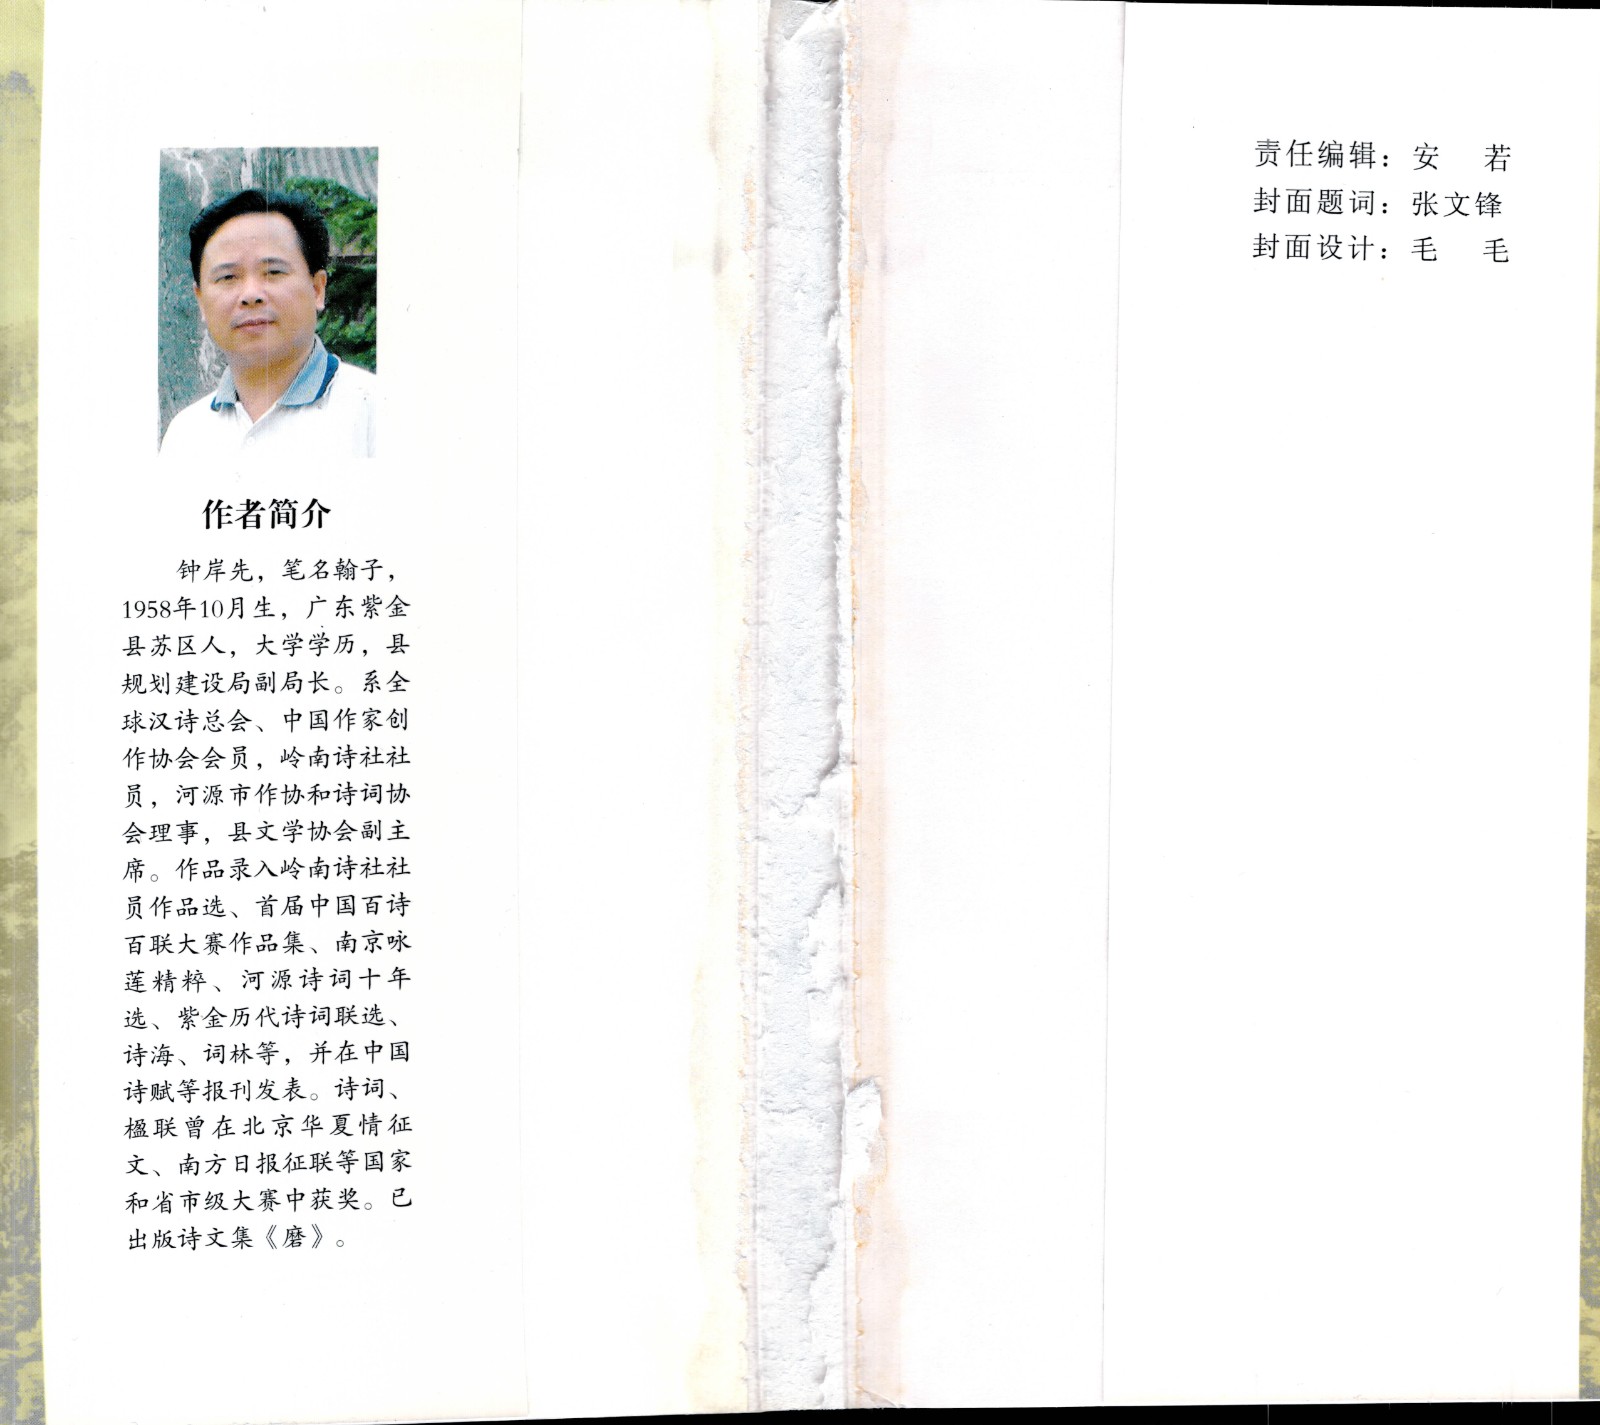 作者简介
钟岸先，笔名翰子，
1958年10月生，广东紫金
县苏区人，大学学历，县
规划建设局副局长。系全
球汉诗总会、中国作家创
作协会会员，岭南诗社社
员，河源市作协和诗词协
会理事，县文学协会副主
席。作品录入岭南诗社社
员作品选、首届中国百诗
百联大赛作品集、南京咏
莲精粹、河源诗词十年
选、紫金历代诗词联选、
诗海、词林等，并在中国
诗赋等报刊发表。诗词、
楹联曾在北京华夏情征
文、南方日报征联等国家
和省市级大赛中获奖。已
出版诗文集《磨》。
责任编辑：安　若
封面题词：张文锋
封面设计：毛　毛